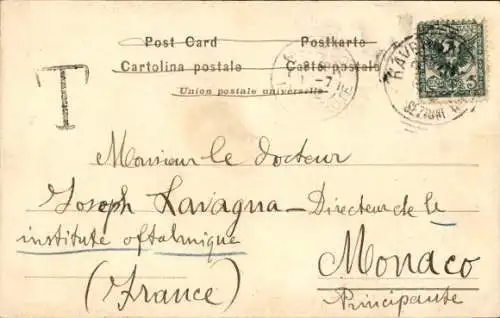 Post Card Postkarte
Cartolina postale Carte postale
Union postale universelle
T
5
Monsieur le docteur
Joseph Lavagna - Directeur de le
institute oftalmique
Monaco
(France)
Principante